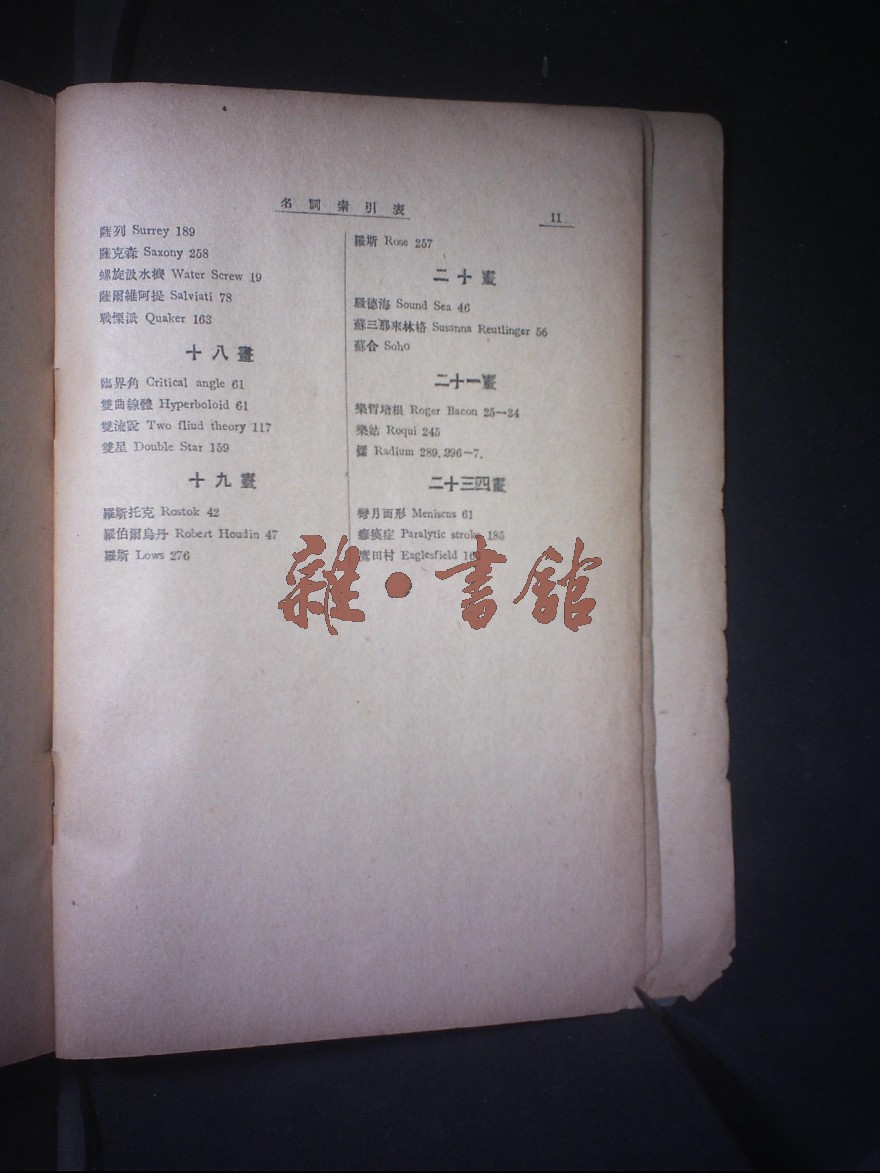 名詞索引表
11
薩列 Surrey 189
薩克森 Saxony 258
螺旋汲水機 Water Screw 19
薩爾維阿提 Salviati 78
戰慄派 Quaker 163
十八畫
臨界角 Critical angle 61
雙曲線體 Hyperboloid 61
雙流說 Two fliud theory 117
雙星 Double Star 159
十九畫
羅斯托克 Rostok 42
羅伯爾烏丹 Robert Houdin 47
羅斯 Lows 276
羅斯 Rose 257
二十畫
騷德海 Sound Sea 46
蘇三那來林格 Susanna Reutlinger 56
蘇合 Soho
二十一畫
樂哲培根 Roger Bacon 25—34
樂姑 Roqui 245
Radium 289, 296—7.
二十三四畫
彎月面形 Meniscus 61
癱瘓症 Paralytic stroke 185
鷹田村 Eaglesfield
雜·書館